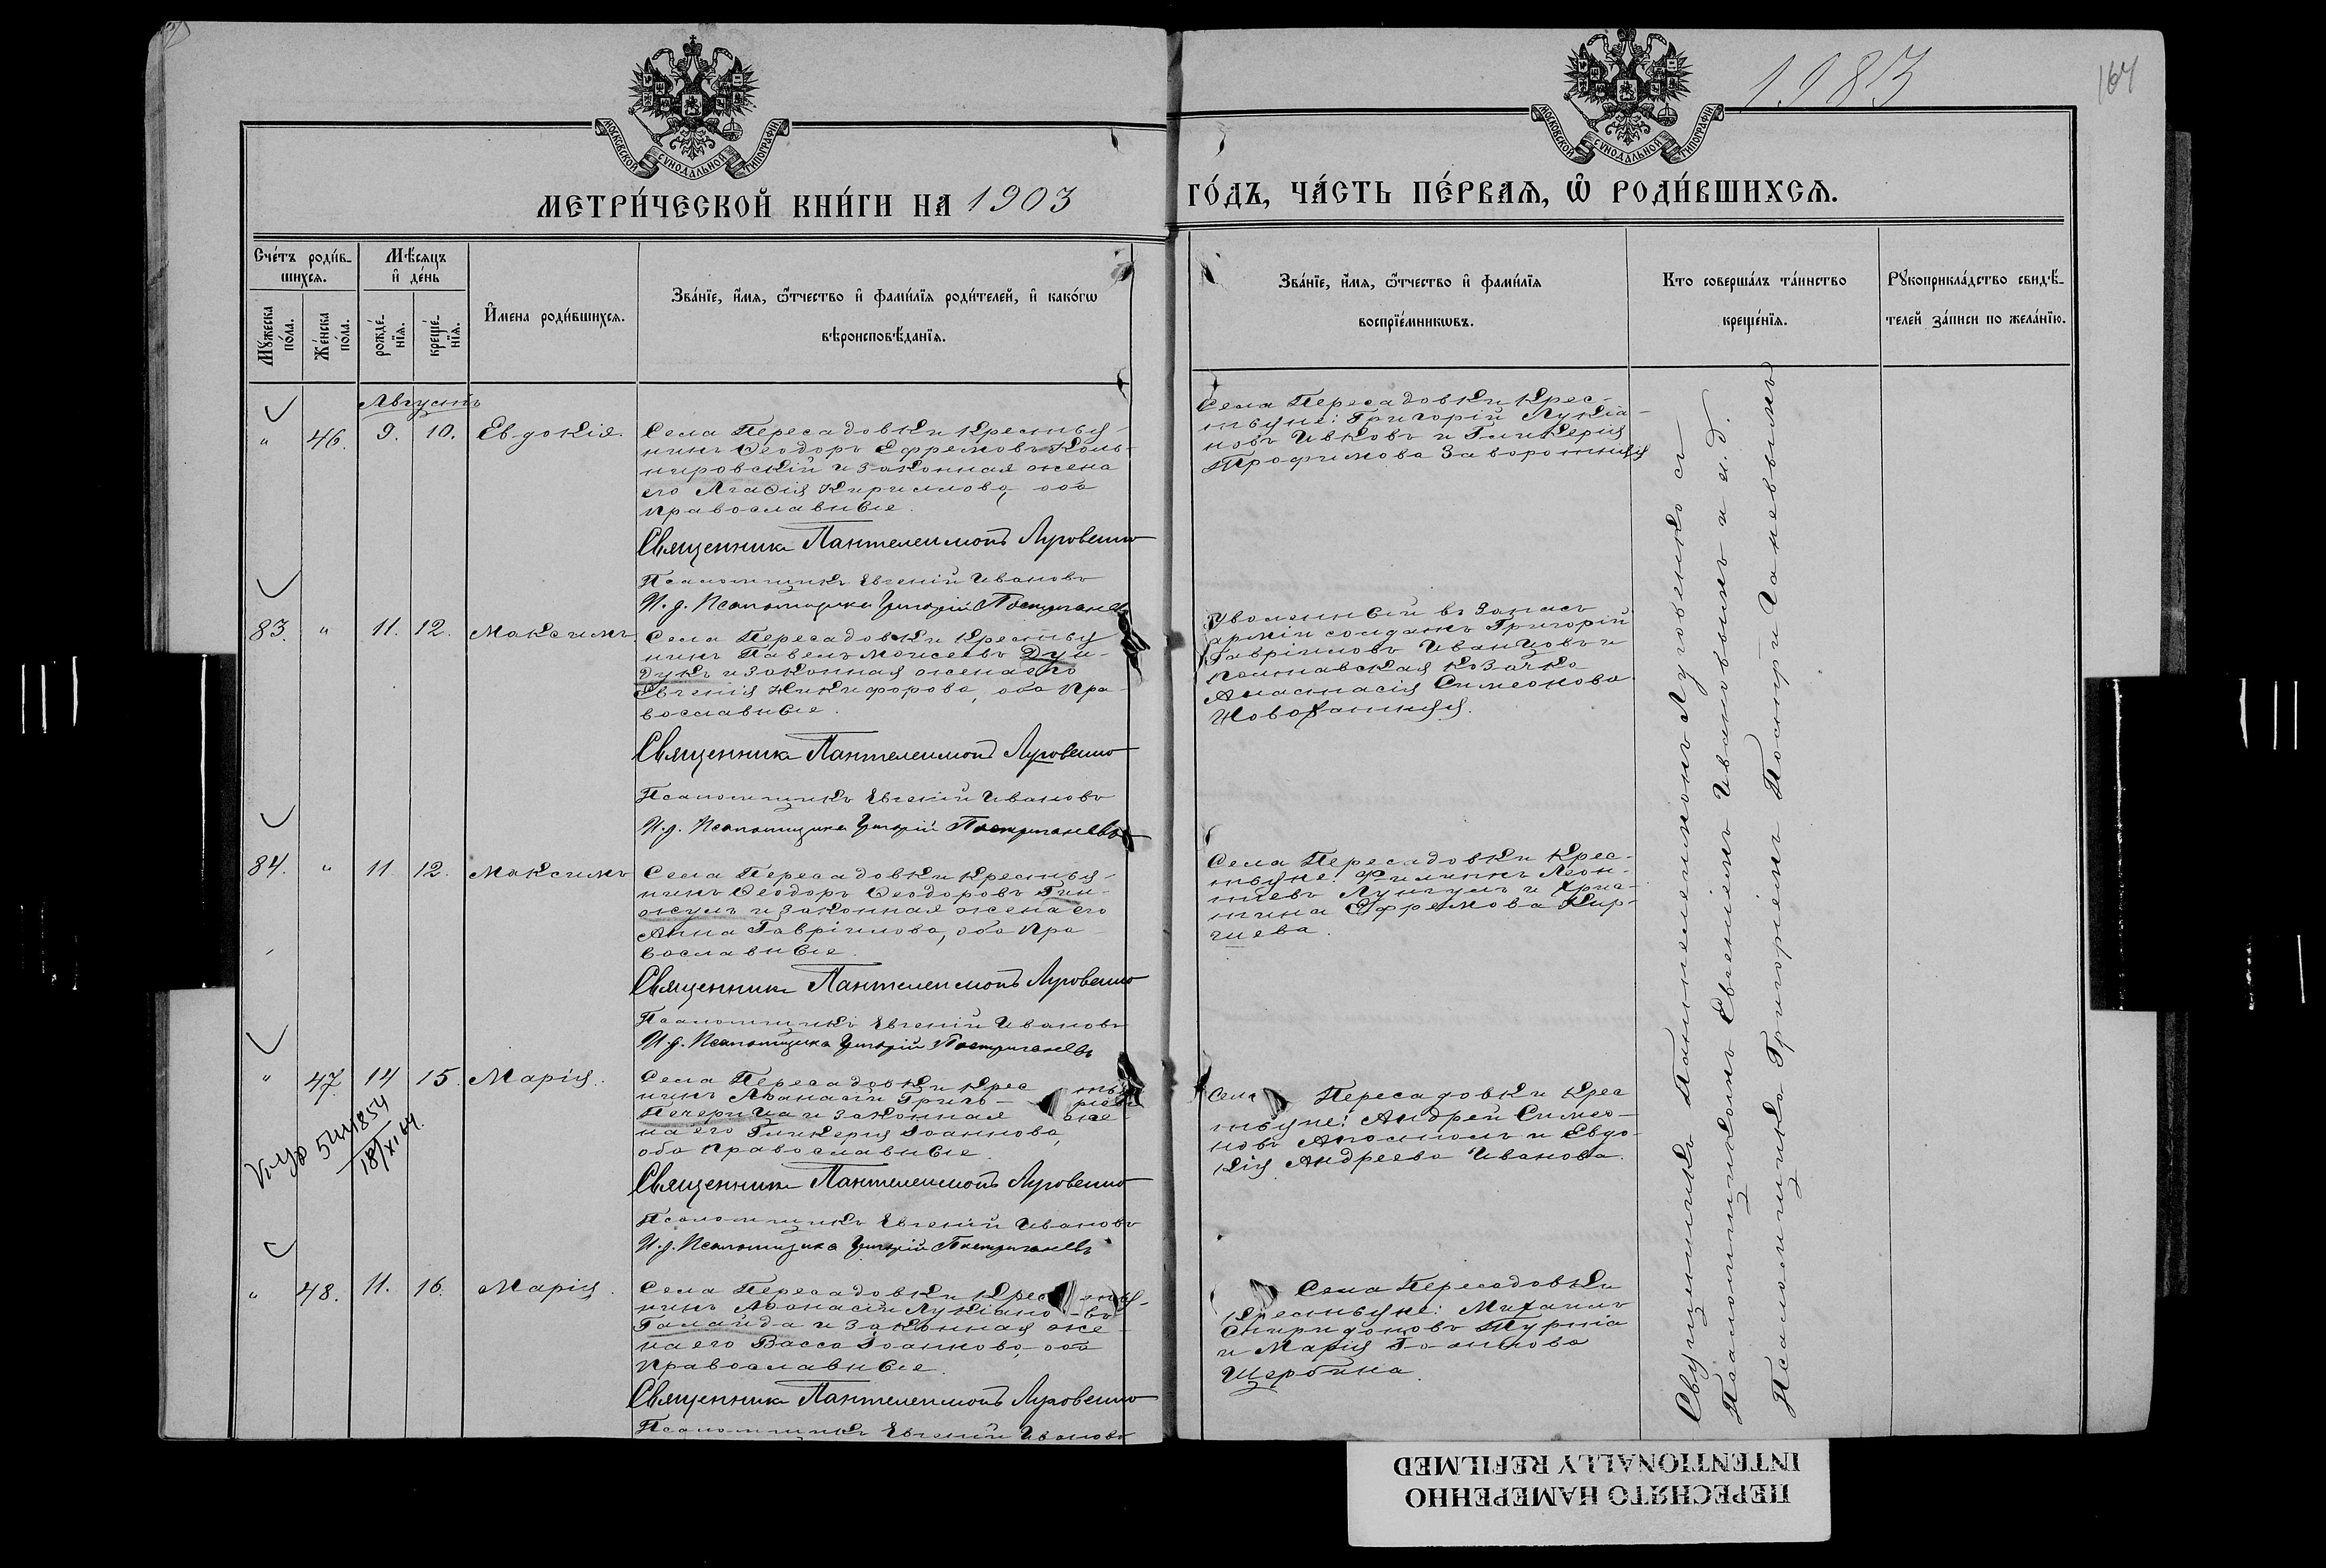 1983
164
МОСКОВСКОЙ СѴНОДАЛЬНОЙ ТИПОГРАФІИ
МОСКОВСКОЙ СѴНОДАЛЬНОЙ ТИПОГРАФІИ
МЕТРИ́ЧЕСКОЙ КНИ́ГИ НА 1903
ГО́ДЪ, ЧА́СТЬ ПЕ́РВАѦ, Ѽ РОДИ́ВШИХСѦ.
Сче́тъ роди́в-
шихсѧ.
Мꙋ́жеска по́ла.
Же́нска по́ла.
Мѣ́сѧцъ
и҆ де́нь
рожде́-
нїѧ.
креще́-
нїѧ.
И҆мена роди́вшихсѧ.
Зва́нїе, и҆́мѧ, ѻ҆́тчество и҆ фами́лїѧ роди́телей, и҆ како́гѡ
вѣроисповѣ́данїѧ.
Зва́нїе, и҆́мѧ, ѻ҆́тчество и҆ фами́лїѧ
воспрїе́мникѡвъ.
Кто соверша́лъ та́инство
креще́нїѧ.
Рꙋкоприкла́дство свидѣ́-
телей за́писи по жела́нїю.
Августъ
" 46. 9. 10. Евдокія.
Села Пересадовки крестья-
нинъ Ѳеодоръ Ефремовъ Коль-
нировскій и законная жена
его Агаѳія Кириллова, оба
православные.
Священникъ Пантелеимонъ Луговенко
Псаломщикъ Евгеній Ивановъ
И. д. Псаломщика Григорій Постригачевъ
Села Пересадовки крес-
тьяне: Григорій Лукіа-
новъ Ивковъ и Гликерія
Трофимова Заворотняя
83. " 11. 12. Максимъ
Села Пересадовки крестья
нинъ Павелъ Моисеевъ Дун-
дукъ и законная жена его
Евгенія Никифорова, оба пра-
вославные.
Священникъ Пантелеимонъ Луговенко
Псаломщикъ Евгеній Ивановъ
И. д. Псаломщика Григорій Постригачевъ
Уволенный въ запасъ
арміи солдатъ Григорій
Гавріиловъ Иванцовъ и
полтавская козачка
Анастасія Симеонова
84. " 11. 12. Максимъ
Села Пересадовки крестья-
нинъ Ѳеодоръ Ѳеодоровъ Гин-
жулъ и законная жена его
Анна Гавріилова, оба пра
вославные.
Священникъ Пантелеимонъ Луговенко
Псаломщикъ Евгеній Ивановъ
И. д. Псаломщика Григорій Постригачевъ
Села Пересадовки крес-
тьяне: Филиппъ Леон-
тіевъ Лунгулъ и Хрис-
тина Ефремова Кир-
чиева.
" 47. 14 15. Марія.
Села Пересадовки крес тья
нинъ Аѳанасій Григо- рьевъ
Печерица и законная же-
на его Гликерія Іоаннова,
оба православные.
Священникъ Пантелеимонъ Луговенко
Псаломщикъ Евгеній Ивановъ
И. д. Псаломщика Григорій Постригачевъ
544854
18/XI 64.
Села Пересадовки крес
тьяне: Андрей Симео-
новъ Апостолъ и Евдо-
кія Андреева Иванова.
" 48. 11. 16. Марія.
Села Пересадовки крес тья-
нинъ Аѳанасій Лукіано-въ
Галайда и законная же-
на его Васса Іоаннова, оба
православные.
Священникъ Пантелеимонъ Луговенко
Псаломщикъ Евгеній Ивановъ
Села Пересадовки
крестьяне: Михаилъ
Спиридоновъ Турта
и Марія
Щербина.
Священникъ Пантелеимонъ Луговенко съ
Псаломщикомъ Евгеніемъ Ивановымъ и и. д.
Псаломщика Григоріемъ Постригачевымъ
ПЕРЕСНЯТО НАМЕРЕННО
INTENTIONALLY REFILMED